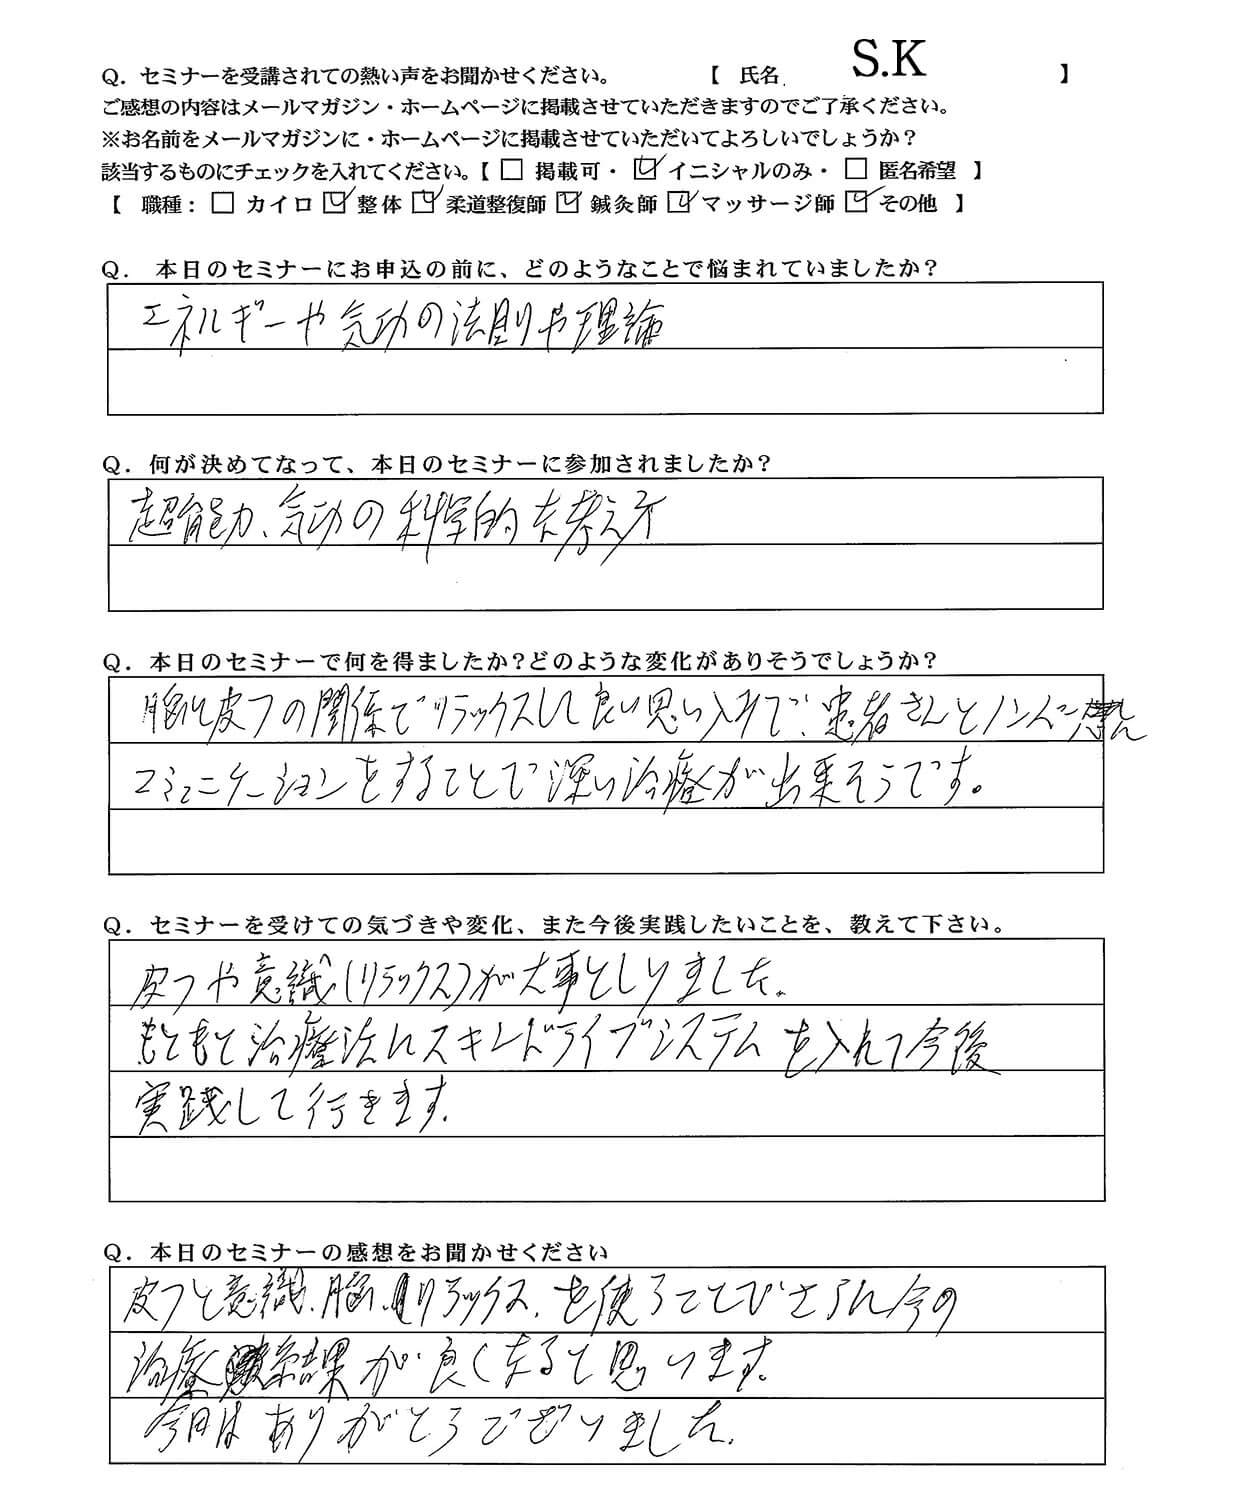 Q. セミナーを受講されての熱い声をお聞かせください。 【 氏名 S.K 】
ご感想の内容はメールマガジン・ホームページに掲載させていただきますのでご了承ください。
※お名前をメールマガジンに・ホームページに掲載させていただいてよろしいでしょうか？
該当するものにチェックを入れてください。【 □ 掲載可・ ☑ イニシャルのみ・ □ 匿名希望 】
【 職種： □ カイロ ☑ 整体 ☑ 柔道整復師 ☑ 鍼灸師 ☑ マッサージ師 ☑ その他 】
Q. 本日のセミナーにお申込の前に、どのようなことで悩まれていましたか？
エネルギーや気功の法則や理論
Q. 何が決めてなって、本日のセミナーに参加されましたか？
超能力、気功の科学的な考え方
Q. 本日のセミナーで何を得ましたか？どのような変化がありそうでしょうか？
脳と皮フの関係でリラックスして良い思い入れで、患者さんとノンバーバル
コミュニケーションをすることで深い治療が出来そうです。
Q. セミナーを受けての気づきや変化、また今後実践したいことを、教えて下さい。
皮フや意識(リラックス)が大事としりました。
もともと治療法にスキンドライブシステムを入れて今後
実践して行きます。
Q. 本日のセミナーの感想をお聞かせください
皮フと意識、脳、リラックス、を使うことでさらに今の
治療 結果が良くなると思います。
今日はありがとうございました。